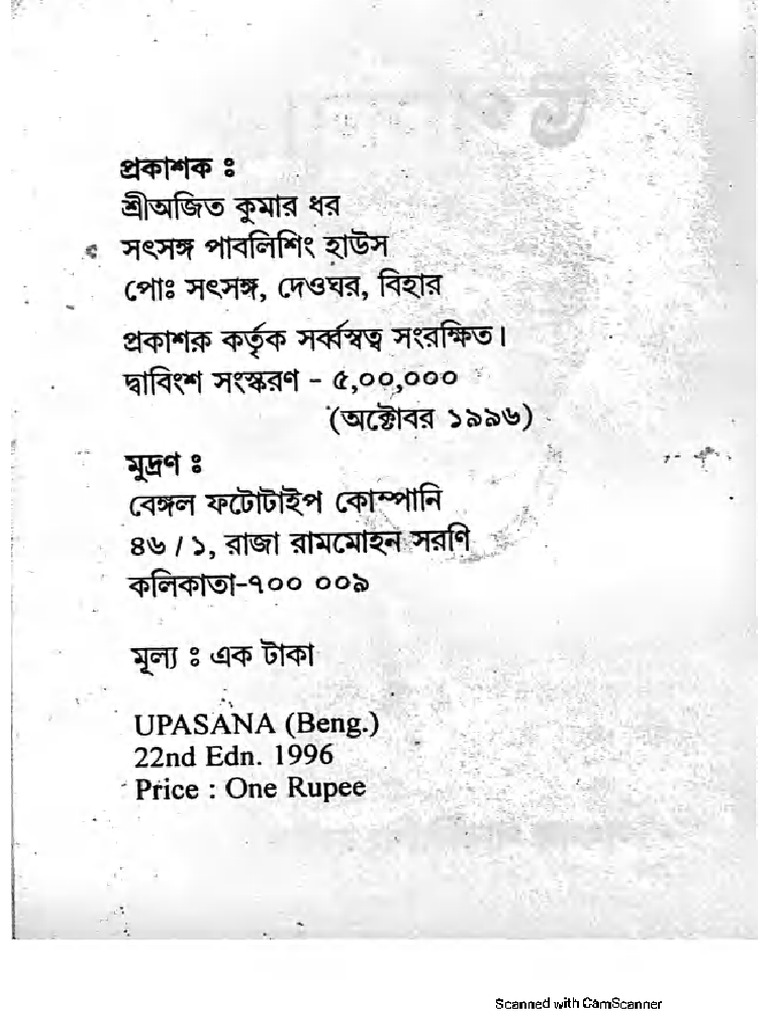 প্রকাশক ঃ
শ্রীঅজিত কুমার ধর
সৎসঙ্গ পাবলিশিং হাউস
পোঃ সৎসঙ্গ, দেওঘর, বিহার
প্রকাশক কর্তৃক সর্ব্বস্বত্ব সংরক্ষিত।
দ্বাবিংশ সংস্করণ – ৫,০০,০০০
(অক্টোবর ১৯৯৬)
মুদ্রণ ঃ
বেঙ্গল ফটোটাইপ কোম্পানি
৪৬ / ১, রাজা রামমোহন সরণি
কলিকাতা-৭০০ ০০৯
মূল্য ঃ এক টাকা
UPASANA (Beng.)
22nd Edn. 1996
Price : One Rupee
Scanned with CamScanner